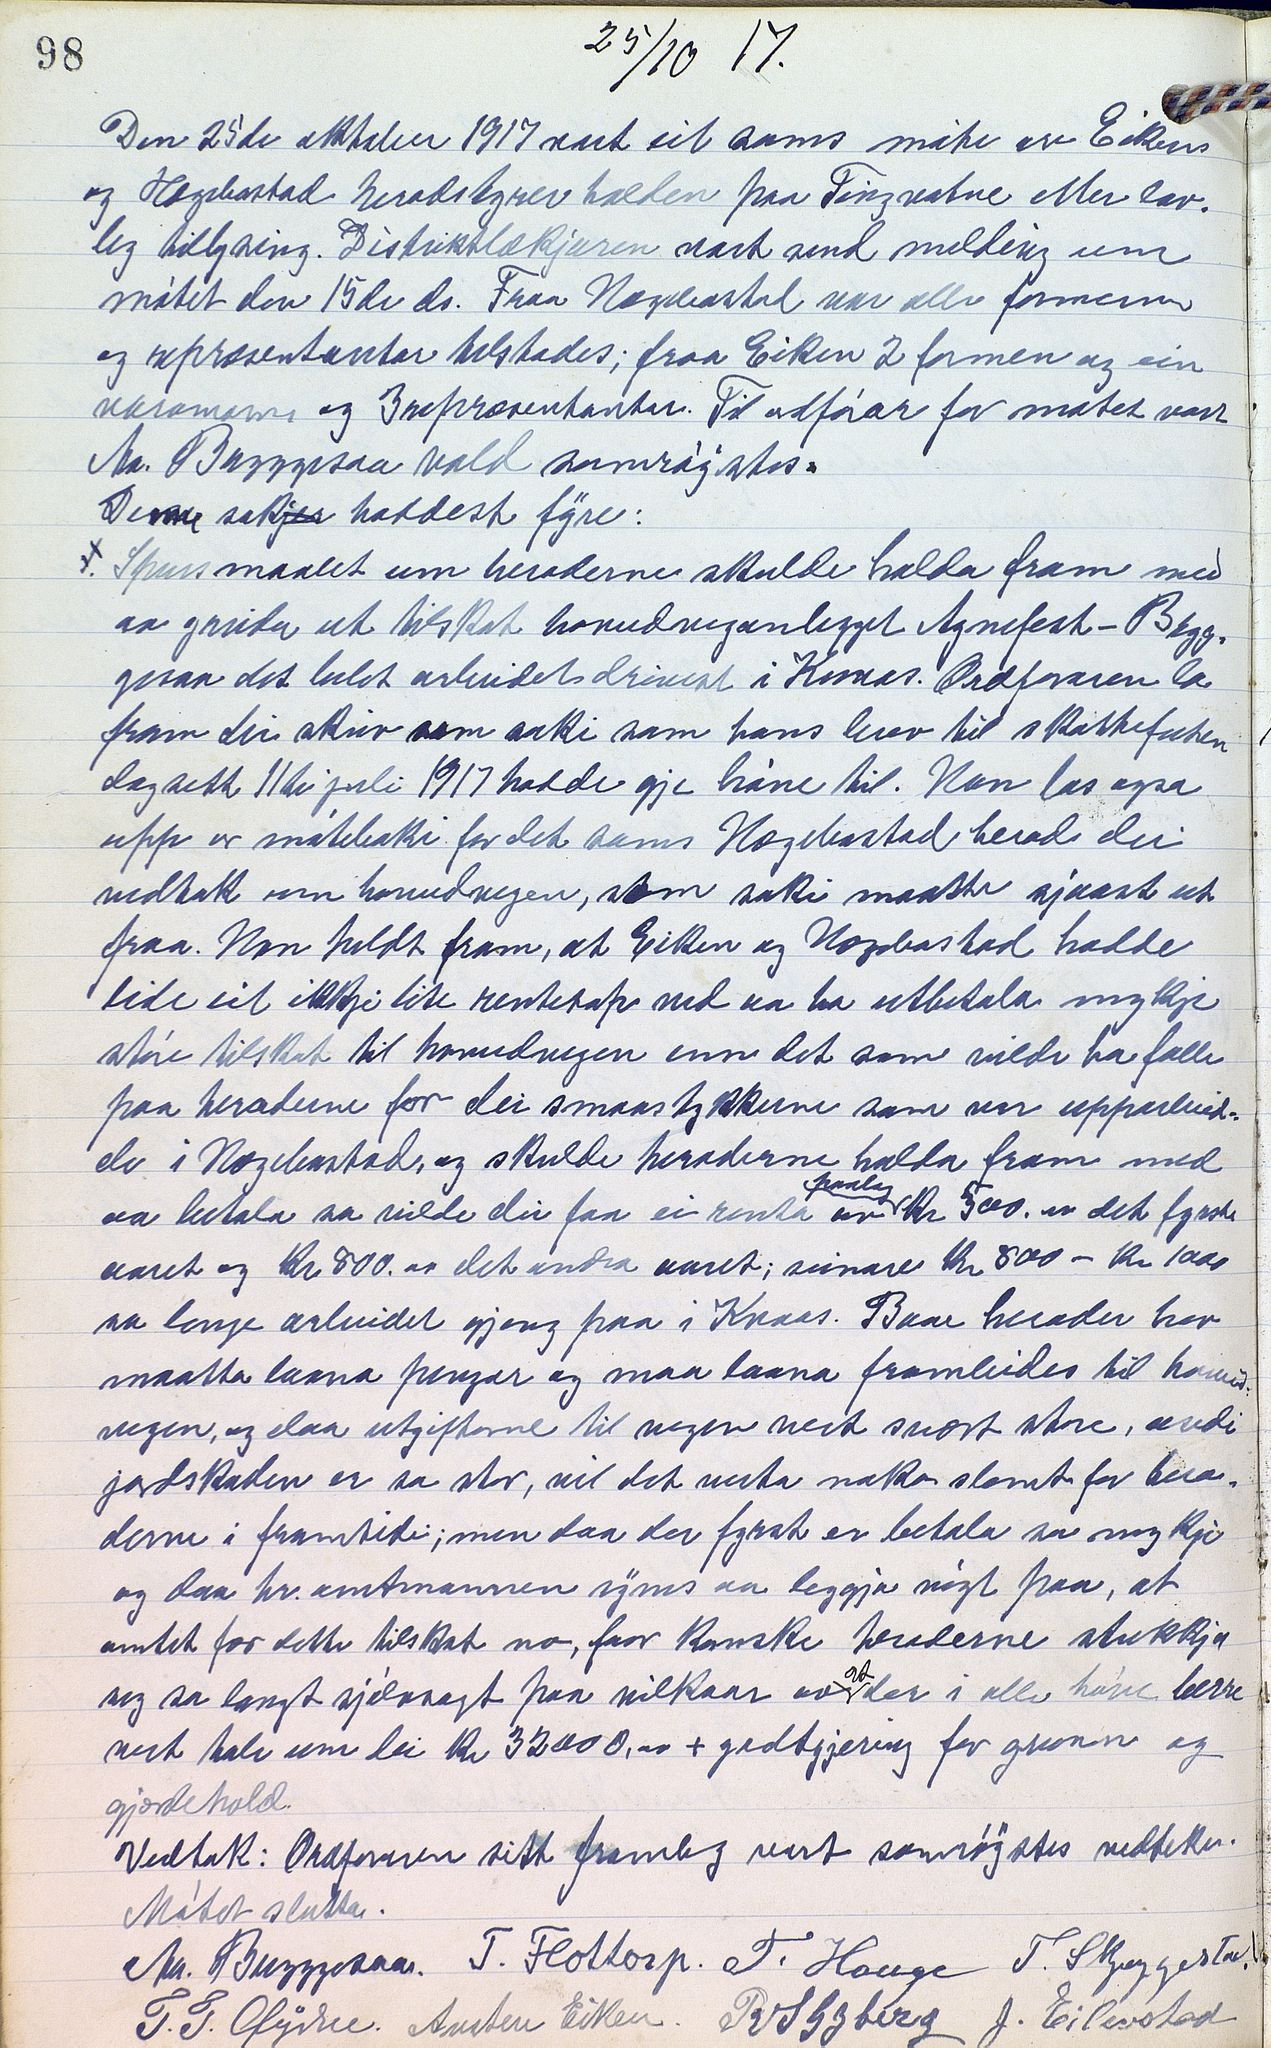 98
25/10 17.
Den 25de oktober 1917 vart eit sams møte av Eikens
og Hægebostad heradstyrer halden paa Tingvatne etter lov-
leg tillysing. Distriktlækjaren vart send melding um
møtet den 15de ds. Fraa Hægebostad var alle formenn
og repræsentantar tilstades; fraa Eiken 2 formen og ein
varamann og 3 repræsentantar. Til ordførar for møtet vart
Aa. Byggesaa vald samrøystes.
Denne sak hoddest fyre:
Spursmaalet um heraderne skulde halda fram med
aa greida ut tilskot hovudveganlegget Agnefest – Bygg-
gesaa det bolet arbeidet drivest i Kvaas. Ordføraren la
fram dei skriv som saki som hans brev til skattefuten
dagsett 11te juli 1917 hadde gje høve til. Han las ogsa
upp or møteboki for det sams Hægebostad herad dei
vedtak um hovudvegen, som saki maatte sjaast ut
fraa. Han heldt fram, at Eiken og Hægebostad hadde
lide eit ikkje lite rentetap ved aa ha utbetala mykje
støre tilskot til hovudvegen enn det som vilde ha falle
paa heraderne for dei smaastykkerne som var upparbeid-
de i Hægebostad, og skulde heraderne halda fram med
aa betala sa vilde dei faa ei renta paalag av Kr 500.00 det fyrste
aaret og Kr 800.00 det andra aaret; seinare Kr 800 – Kr 1000
sa lenge arbeidet gjeng paa i Kvaas. Baae herader hev
maatta laana pengar og maa laana framleides til hovud-
vegen, og daa utgifterne til vegen vert svært store, avdi
jordskaden er sa stor, vil det verta noko slemt for hera-
derne i framtidi; men daa der fyrst er betala sa mykje
og daa hr. amtmannen synes aa leggja vigt paa, at
amtet fær dette tilskot no, faar kanske heraderne strekkja
seg sa langt sjølvsagt paa vilkaar av at der i alle høve berre
vert tale um dei Kr 32000.00 + godtgjering for grunn og
gjærdehold.
Vedtak: Ordføraren sitt framlegg vart samrøystes vedteke.
Møtet slutta.
Aa. Byggesaa. T. Flottorp. T. Hauge T. Skeggestad.
T. T. Øydne. Anders Eiken. P. Slyberg J. Eilevstad